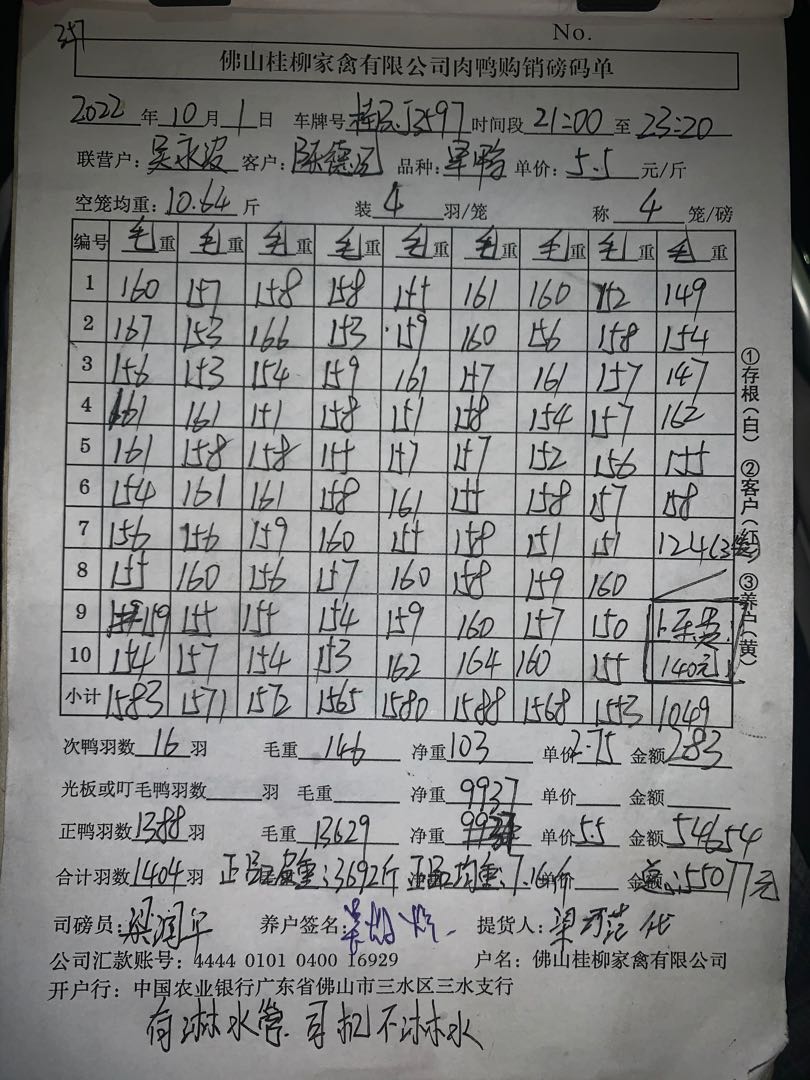 357
No.
佛山桂柳家禽有限公司肉鸭购销磅码单
2022 年 10 月 1 日 车牌号 桂 J3597 时间段 21:00 至 23:20
联营户: 吴永波 客户: 陈德 品种: 单鸭 单价: 5.5 元/斤
空笼均重: 10.64 斤 装 4 羽/笼 称 4 笼/磅
编号 毛重 毛重 毛重 毛重 毛重 毛重 毛重 毛重 毛重
1 160 157 158 158 155 161 160 152 149
2 167 153 166 153 159 160 156 158 154
3 156 153 154 159 161 157 161 157 147
4 161 161 151 158 151 158 154 157 162
5 161 158 158 155 157 157 152 156 155
6 154 161 161 158 161 155 158 157 158
7 156 156 159 160 155 158 151 151 124(3笼)
8 155 160 156 157 160 158 159 160
9 159 155 155 154 159 160 157 150 卡车费
10 154 157 154 153 162 164 160 155 140元
小计 1583 1571 1572 1565 1580 1588 1568 1553 1049
①存根(白) ②客户(红) ③养户(黄)
次鸭羽数 16 羽 毛重 146 净重 103 单价 2.75 金额 283
光板或叮毛鸭羽数 羽 毛重 净重 9937 单价 金额
正鸭羽数 1388 羽 毛重 13629 净重 单价 5.5 金额 54654
合计羽数 1404 羽 正品 重:3692斤 正品均重:7.16斤 单价 金额 总:55077元
司磅员: 梁润年 养户签名: 提货人: 梁 范 代
公司汇款账号: 4444 0101 0400 16929 户名: 佛山桂柳家禽有限公司
开户行: 中国农业银行广东省佛山市三水区三水支行
有淋水管.司机不淋水